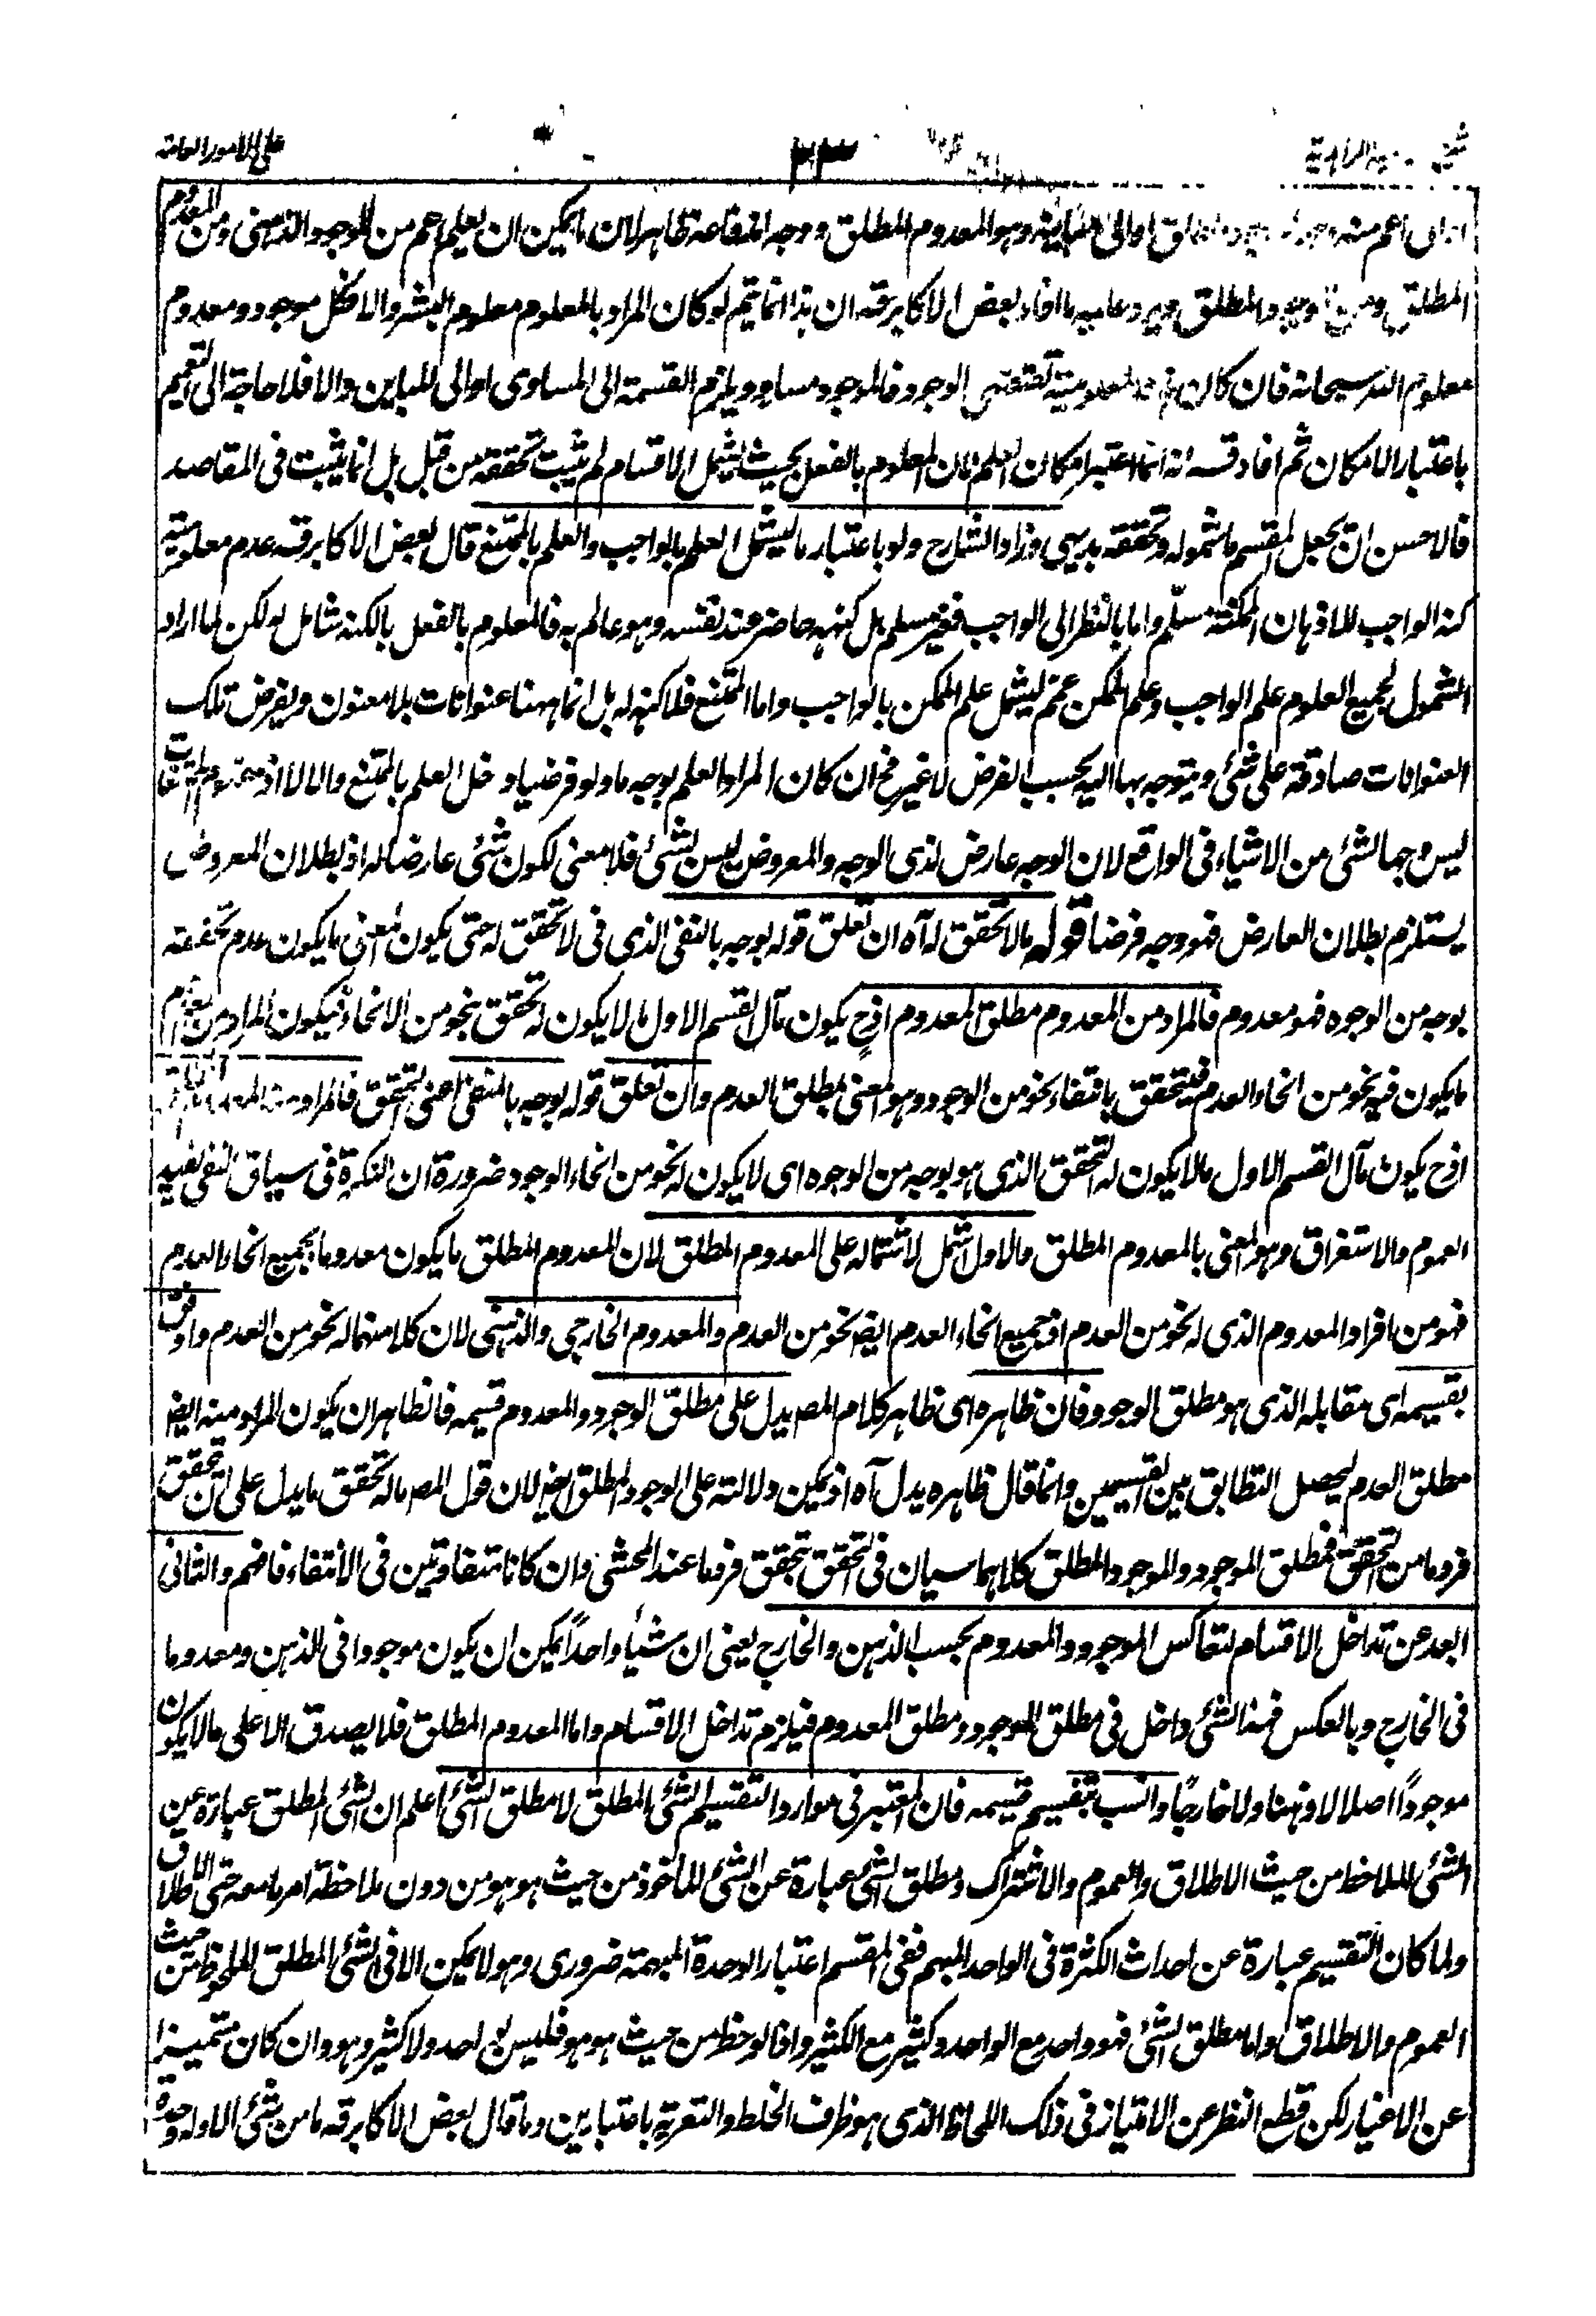 على الامور العامة
٣٣
اعم منه المطلق او الى مباينه وهو المعدوم المطلق ووجه اندفاعه ظاهر لان ما يمكن ان يعلم اعم من الموجود الذهنى ومن المعدوم
المطلق ومن الموجود المطلق ويرد عليه ما افاد بعض الاكابر قه ان هذا انما يتم لو كان المراد بالمعلوم معلوم البشر والا فكل موجود ومعدوم
معلوم الله سبحانه فان كان المعلومية تقتضى الوجود فالموجود مساو ويلزم القسمة الى المساوى او الى المباين والا فلا حاجة الى التعميم
باعتبار الامكان ثم افاد قسه انه انما اعتبر امكان العلم لان المعلوم بالفعل بحيث يشمل الاقسام لم يثبت تحققه من قبل بل انما يثبت فى المقاصد
فالاحسن ان يجعل المقسم ما شموله وتحققه بديهى وزاد الشارح ولو باعتبار ما ليشمل العلم بالواجب والعلم بالممتنع قال بعض الاكابر قه عدم معلومية
كنه الواجب للاذهان الممكنة مسلّم واما بالنظر الى الواجب فغير مسلم بل كنهه حاضر عند نفسه وهو عالم به فالمعلوم بالفعل بالكنه شامل له لكن لما اراد
الشمول لجميع العلوم علم الواجب وعلم الممكن عمم ليشمل علم الممكن بالواجب واما الممتنع فلا كنه له بل انما ههنا عنوانات بلا معنون ويفرض تلك
العنوانات صادقة على شئ ويتوجه بها اليه بحسب الفرض لا غير فح ان كان المراد العلم بوجه ما ولو فرضيا دخل العلم بالممتنع والا لا اذ مفهوم الممتنعات
ليس وجها لشئ من الاشياء فى الواقع لان الوجه عارض لذى الوجه والمعروض ليس بشئ فلا معنى لكون شئ عارضا له اذ بطلان المعروض
يستلزم بطلان العارض فهو وجه فرضا قوله ما لا تحقق له آه ان تعلق قوله بوجه بالنفى الذى فى لا تحقق له حتى يكون المعنى ما يكون عدم تحققه
بوجه من الوجوه فهو معدوم فالمراد من المعدوم مطلق المعدوم اذ ح يكون مآل القسم الاول ما لا يكون له تحقق بنحو من الانحاء فيكون المراد من المعدوم
ما يكون فيه نحو من انحاء العدم فيتحقق بانتفاء نحو من الوجود وهو معنى مطلق العدم وان تعلق قوله بوجه بالمنفى اعنى التحقق فالمراد منه المعدوم المطلق
اذ ح يكون مآل القسم الاول ما لا يكون له التحقق الذى هو بوجه من الوجوه اى لا يكون له نحو من انحاء الوجود ضرورة ان النكرة فى سياق النفى تفيد
العموم والاستغراق وهو المعنى بالمعدوم المطلق والاول اشمل لاشتماله على المعدوم المطلق لان المعدوم المطلق ما يكون معدوما بجميع انحاء العدم
فهو من افراد المعدوم الذى له نحو من العدم اذ جميع انحاء العدم ايض نحو من العدم والمعدوم الخارجى والذهنى لان كلا منهما له نحو من العدم واوفق
بقسيمه اى مقابله الذى هو مطلق الوجود فان ظاهره اى ظاهر كلام المص يدل على مطلق الوجود والمعدوم قسيمه فالظاهر ان يكون المراد منه ايض
مطلق العدم ليحصل التطابق بين القسيمين وانما قال ظاهره يدل آه اذ يمكن دلالته على الوجود المطلق ايض لان قول المص ما له تحقق ما يدل على ان تحقق
فرد ما من التحقق فمطلق الموجود والموجود المطلق كلاهما سيان فى التحقق بتحقق فرد ما عند المحشى وان كانا متفاوتين فى الانتفاء فافهم والثانى
ابعد عن تداخل الاقسام لتعاكس الموجود والمعدوم بحسب الذهن والخارج يعنى ان شيئا واحداً يمكن ان يكون موجودا فى الذهن ومعدوما
فى الخارج وبالعكس فهذا الشئ داخل فى مطلق الموجود ومطلق المعدوم فيلزم تداخل الاقسام واما المعدوم المطلق فلا يصدق الا على ما لا يكون
موجوداً اصلا لا ذهنا ولا خارجاً وانسب بتقسيم قسيمه فان المعتبر فى موارد التقسيم الشئ المطلق لا مطلق الشئ اعلم ان الشئ المطلق عبارة عن
الشئ الملاحظ من حيث الاطلاق والعموم والاشتراك ومطلق الشئ عبارة عن الشئ الماخوذ من حيث هو هو من دون ملاحظة امر ما معه حتى الاطلاق
ولما كان التقسيم عبارة عن احداث الكثرة فى الواحد المبهم ففى المقسم اعتبار الوحدة المبهمة ضرورى وهو لا يمكن الا فى الشئ المطلق الملحوظ من حيث
العموم والاطلاق واما مطلق الشئ فهو واحد مع الواحد وكثير مع الكثير واذا لوحظ من حيث هو هو فليس بواحد ولا كثير وهو وان كان متميزا
عن الاغيار لكن قطع النظر عن الامتياز فى ذلك اللحاظ الذى هو ظرف الخلط والتعرية باعتبارين وما قال بعض الاكابر قه ما من شئ الا وله وحدة